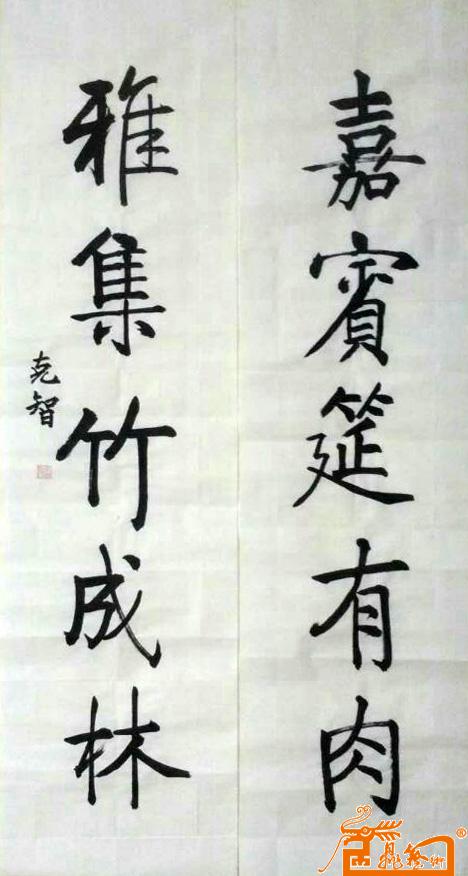 嘉賓筵有肉
雅集竹成林
克智